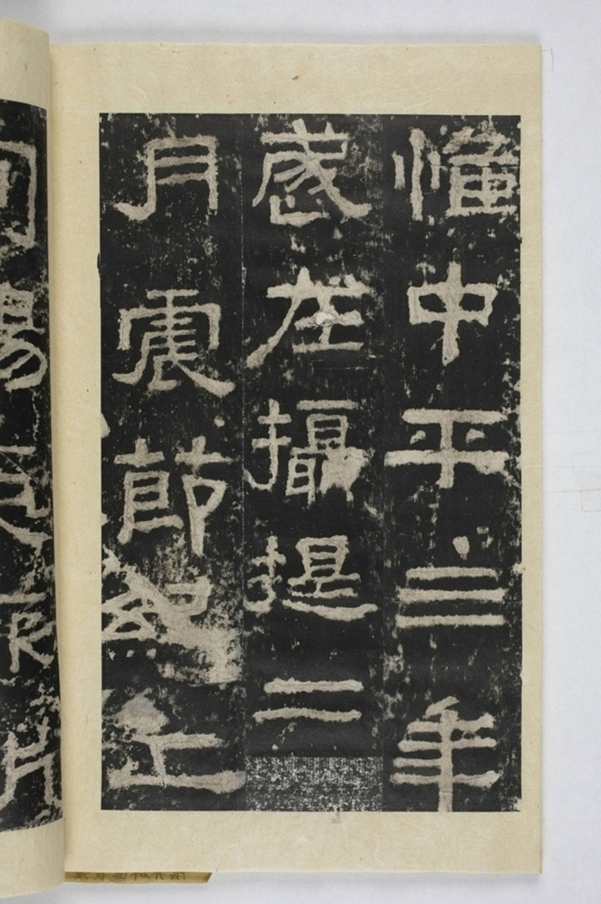 惟中平三年
歲在攝提二
月震節紀上